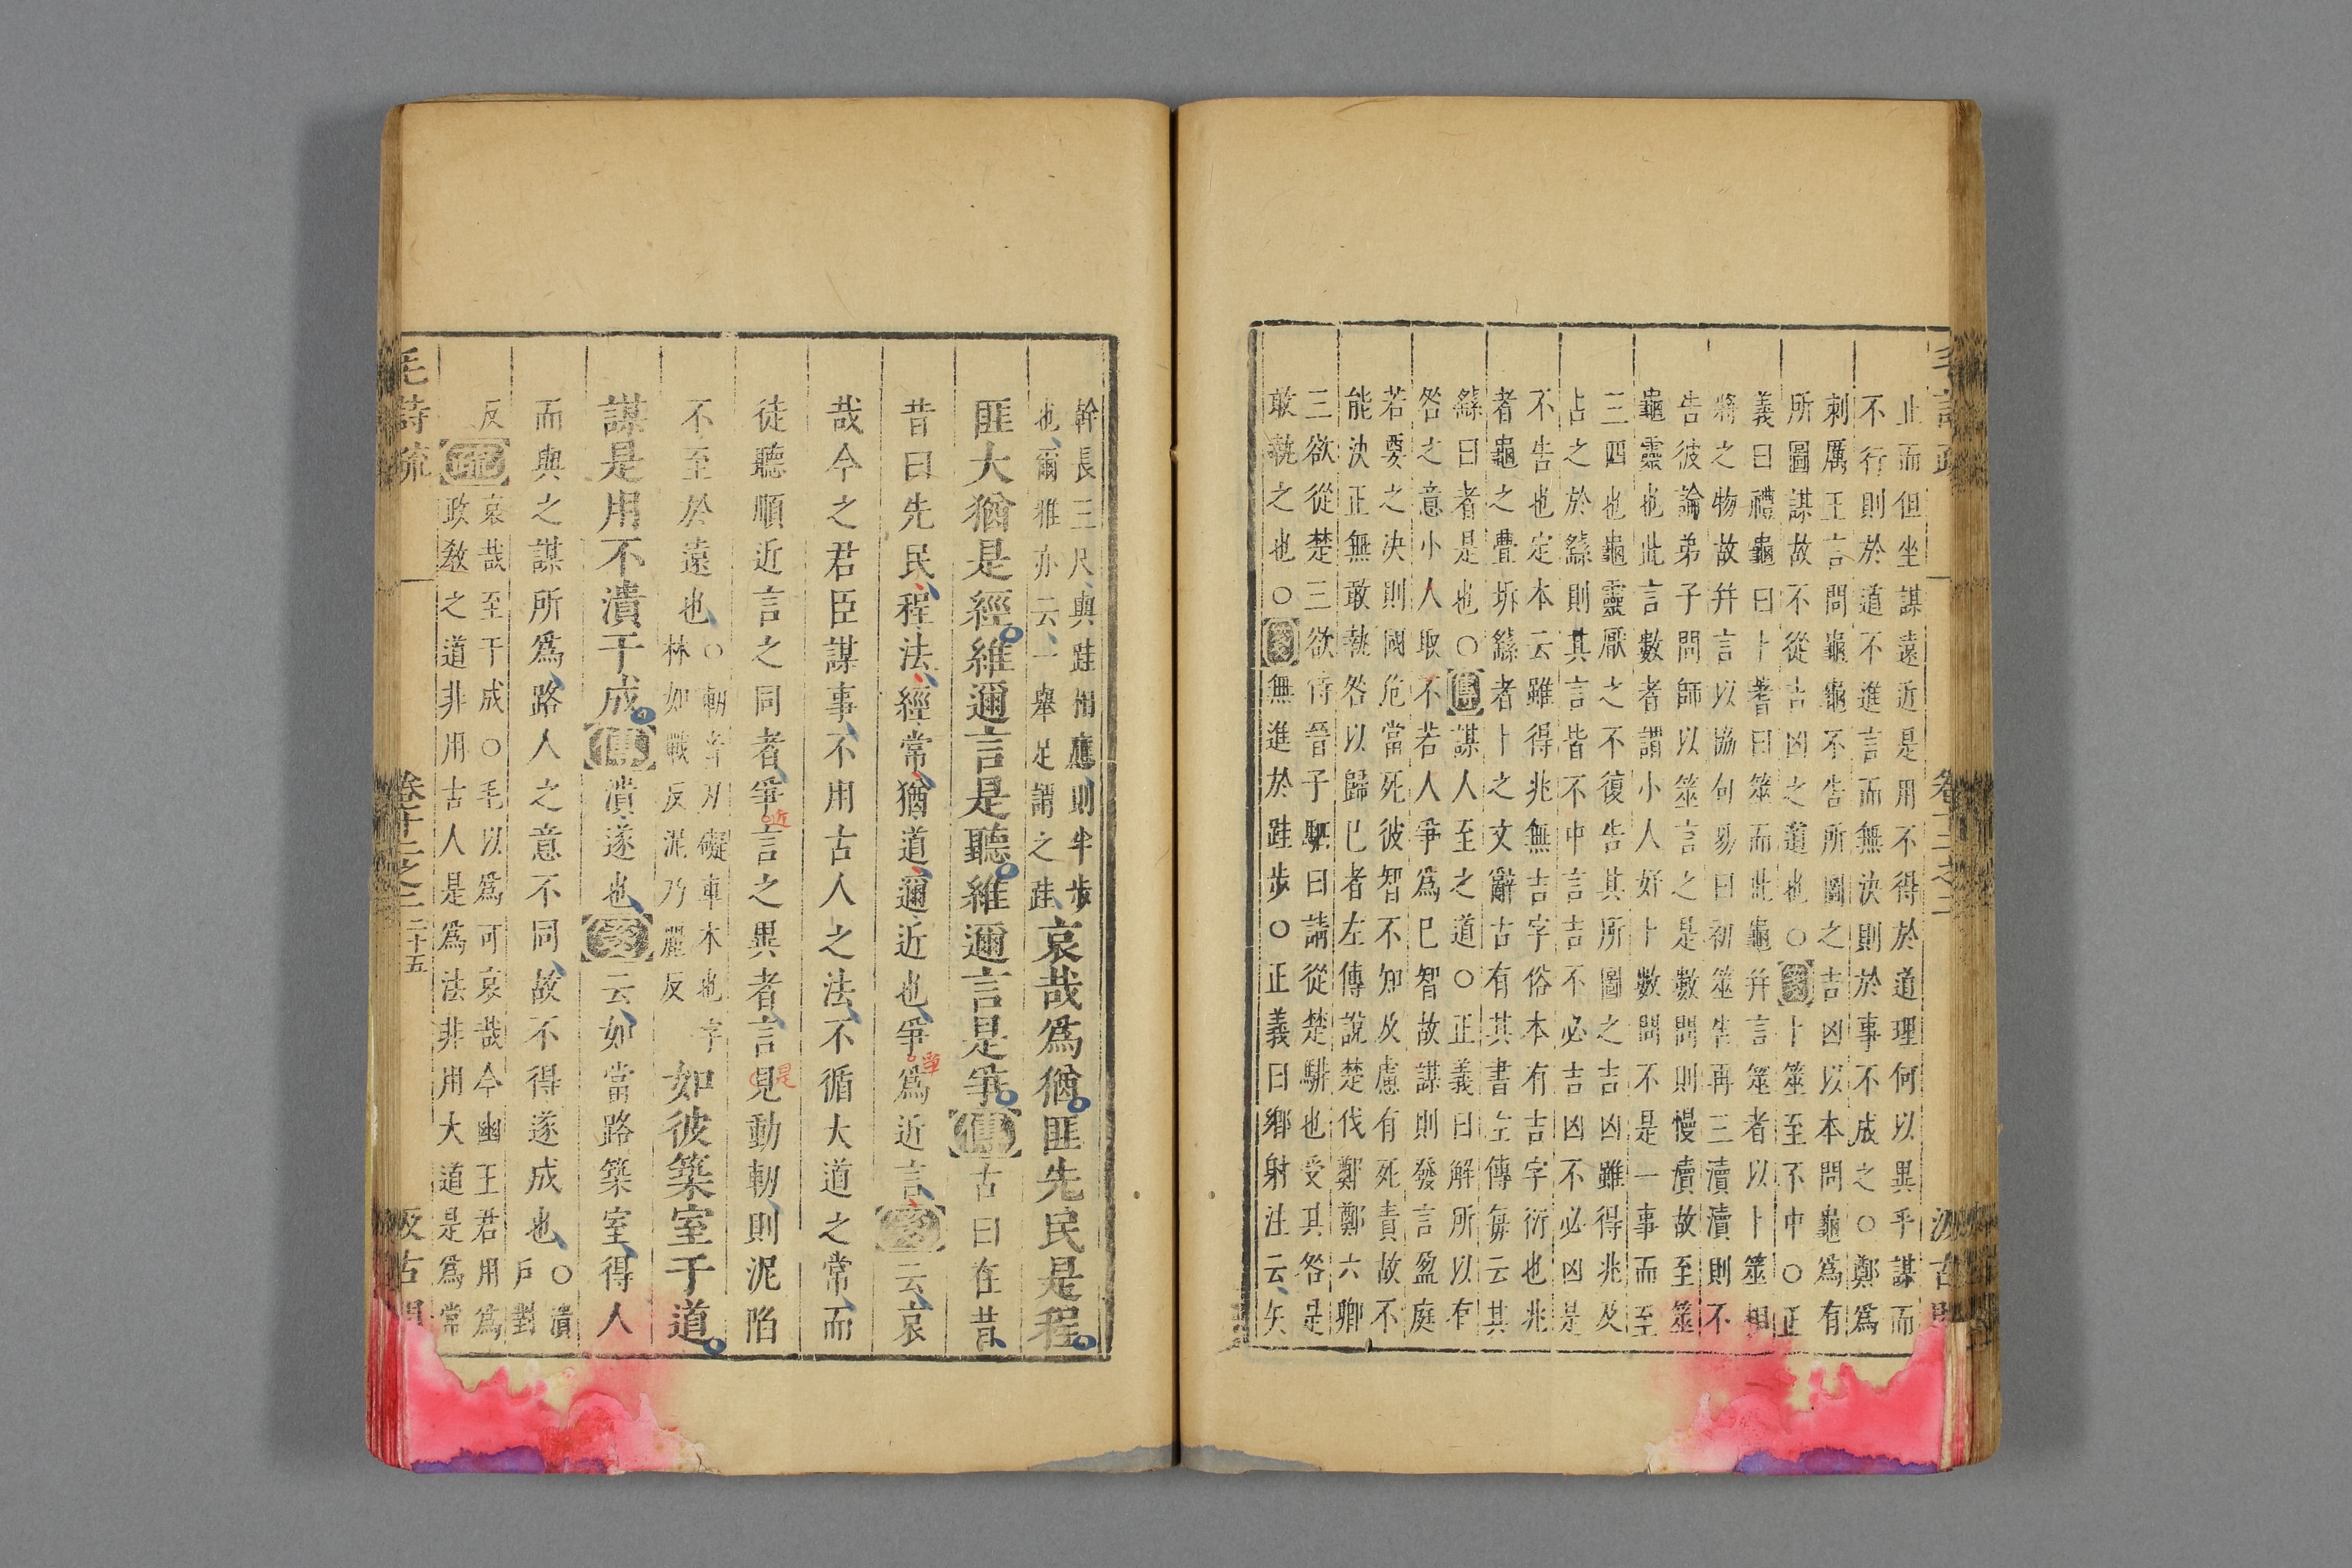 止而但坐謀遠近是用不得於道理何以異乎謀而
不行則於道不進言而無決則於事不成之○鄭爲
刺厲王言問龜龜不告所圖之吉凶以本問龜爲有
所圖謀故不從古凶之道也○箋卜筮至不中○正
義曰禮龜曰卜蓍曰筮而此龜幷言筮者以卜筮相
將之物故幷言以協句易曰初筮告再三瀆瀆則不
告彼論弟子問師以筮言之是數問則慢瀆故至筮
龜靈也此言數者謂小人好卜數問不是一事而至
三四也龜靈厭之不復告其所圖之吉凶雖得兆及
占之於繇則其言皆不中言吉不必吉凶不必凶是
不告也定本云雖得兆無吉字俗本有吉字衍也兆
者龜之舋坼繇者卜之文辭古有其書左傳每云其
繇曰者是也○傳謀人至之道○正義曰解所以有
咎之意小人取不若人爭爲已智故謀則發言盈庭
若要之决則國危當死彼智不知及慮有死責故不
能決正無敢執咎以歸已者左傳說楚伐鄭鄭六卿
三欲從楚三欲待晉子駟曰請從楚騑也受其咎是
敢執之也○箋無進於跬步○正義曰鄉射注云矢
毛詩疏 卷十二之二 汲古閣
幹長三尺與跬相應則半步
也爾雅亦云一舉足謂之跬哀哉爲猶匪先民是程
匪大猶是經維邇言是聽維邇言是爭傳古曰在昔
昔曰先民程法經常猶道邇近也爭爲近言箋云哀
哉今之君臣謀事不用古人之法不循大道之常而
徒聽順近言之同者爭言之異者言見動軔則泥陷
爭 近 是
不至於遠也○軔音刃礙車木也字
林如戰反泥乃麗反如彼築室于道
謀是用不潰于成傳潰遂也箋云如當路築室得人
而與之謀所爲路人之意不同故不得遂成也○潰
戶對
反疏哀哉至于成○毛以爲可哀哉今幽王君用爲
政敎之道非用古人是爲法非用大道是爲常
毛詩疏 卷十二之二 二十五 汲古閣